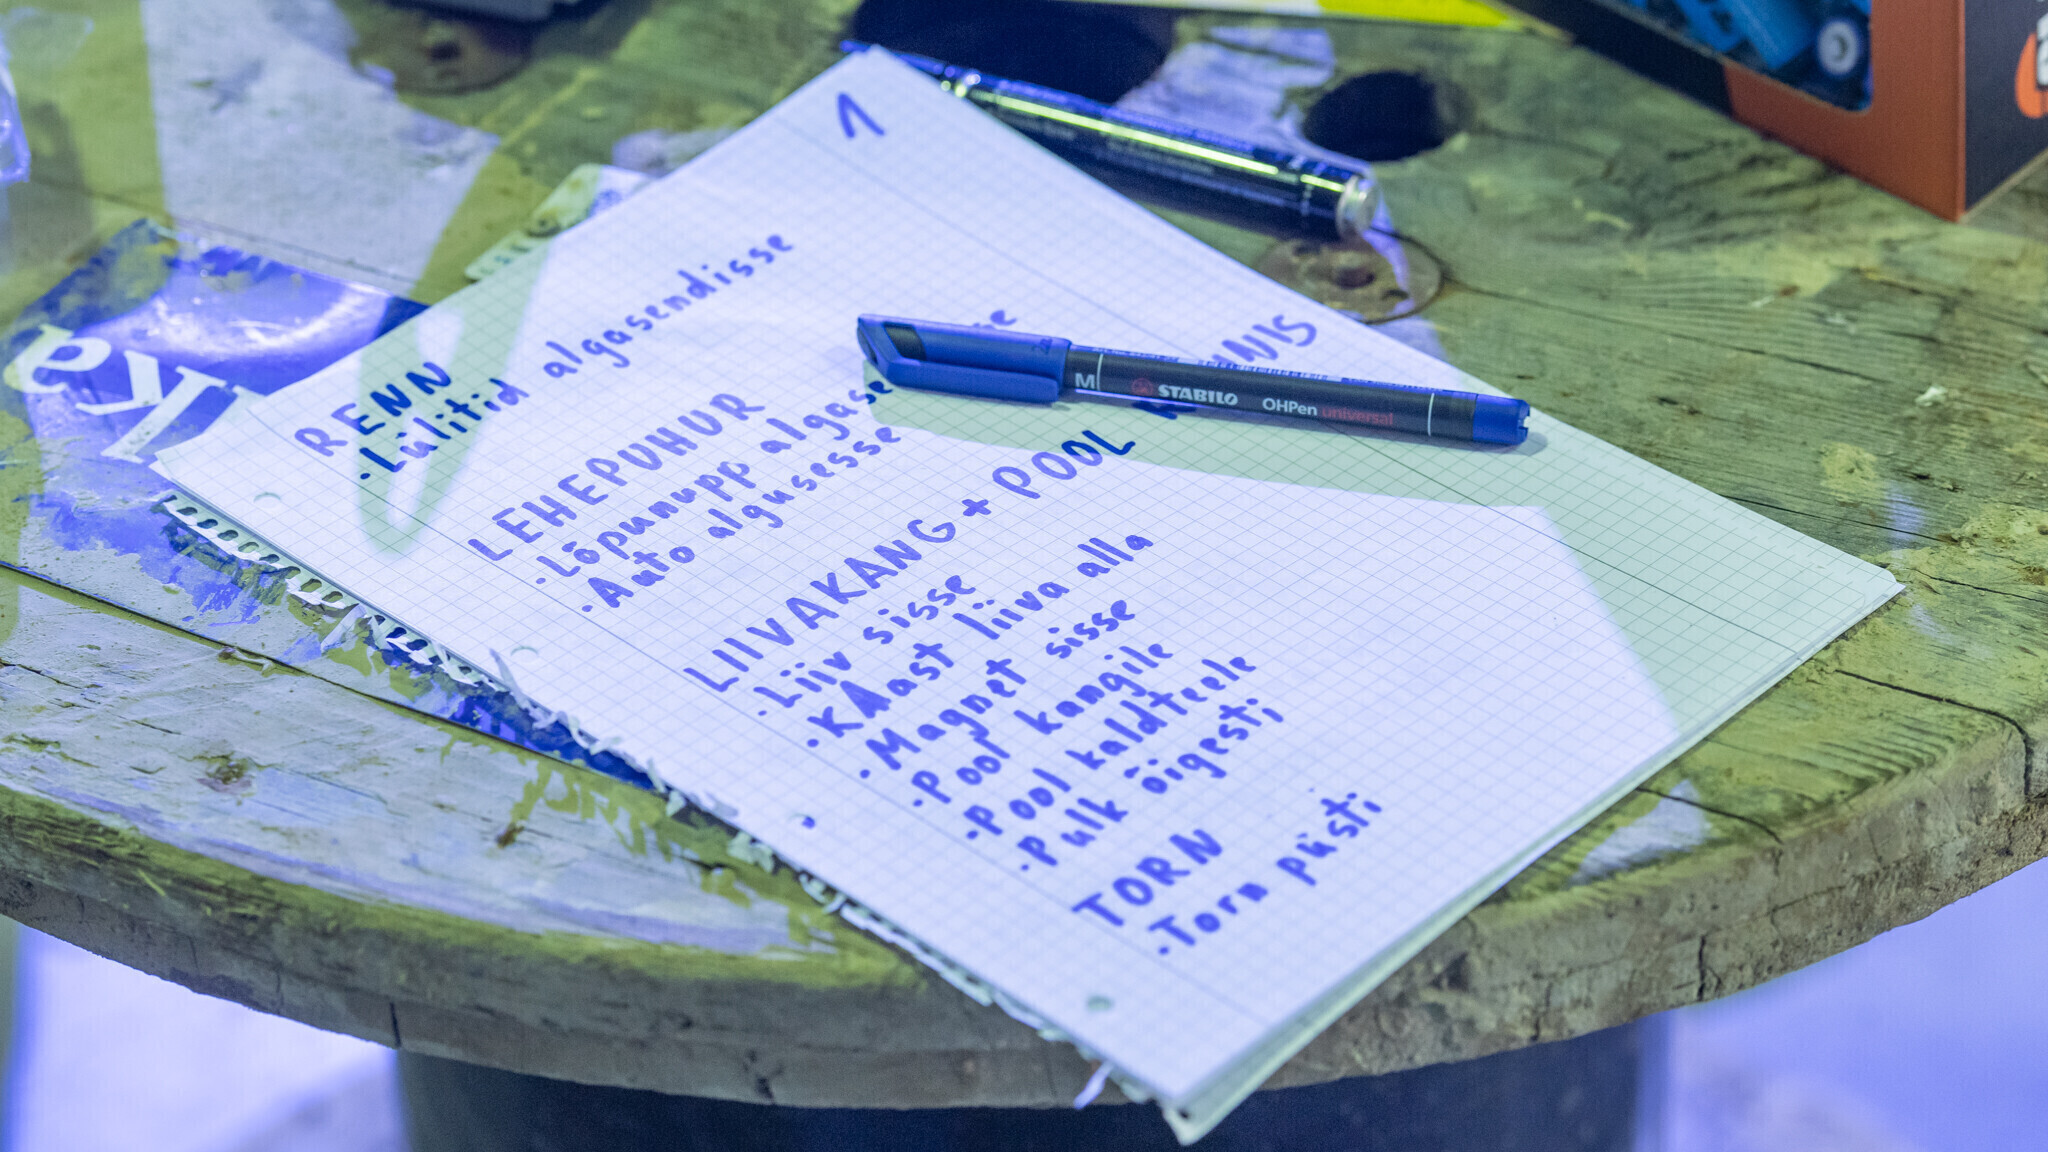 1
RENN
·Lülitid algasendisse
LEHEPUHUR
·Lõpunupp algase sse
·Auto algusesse
LIIVAKANG + POOL NNIS
·Liiv sisse
·KAast liiva alla
·Magnet sisse
·Pool kangile
·Pool kaldteele
·Pulk õigesti
TORN
·Torn püsti
M STABILO OHPen universal